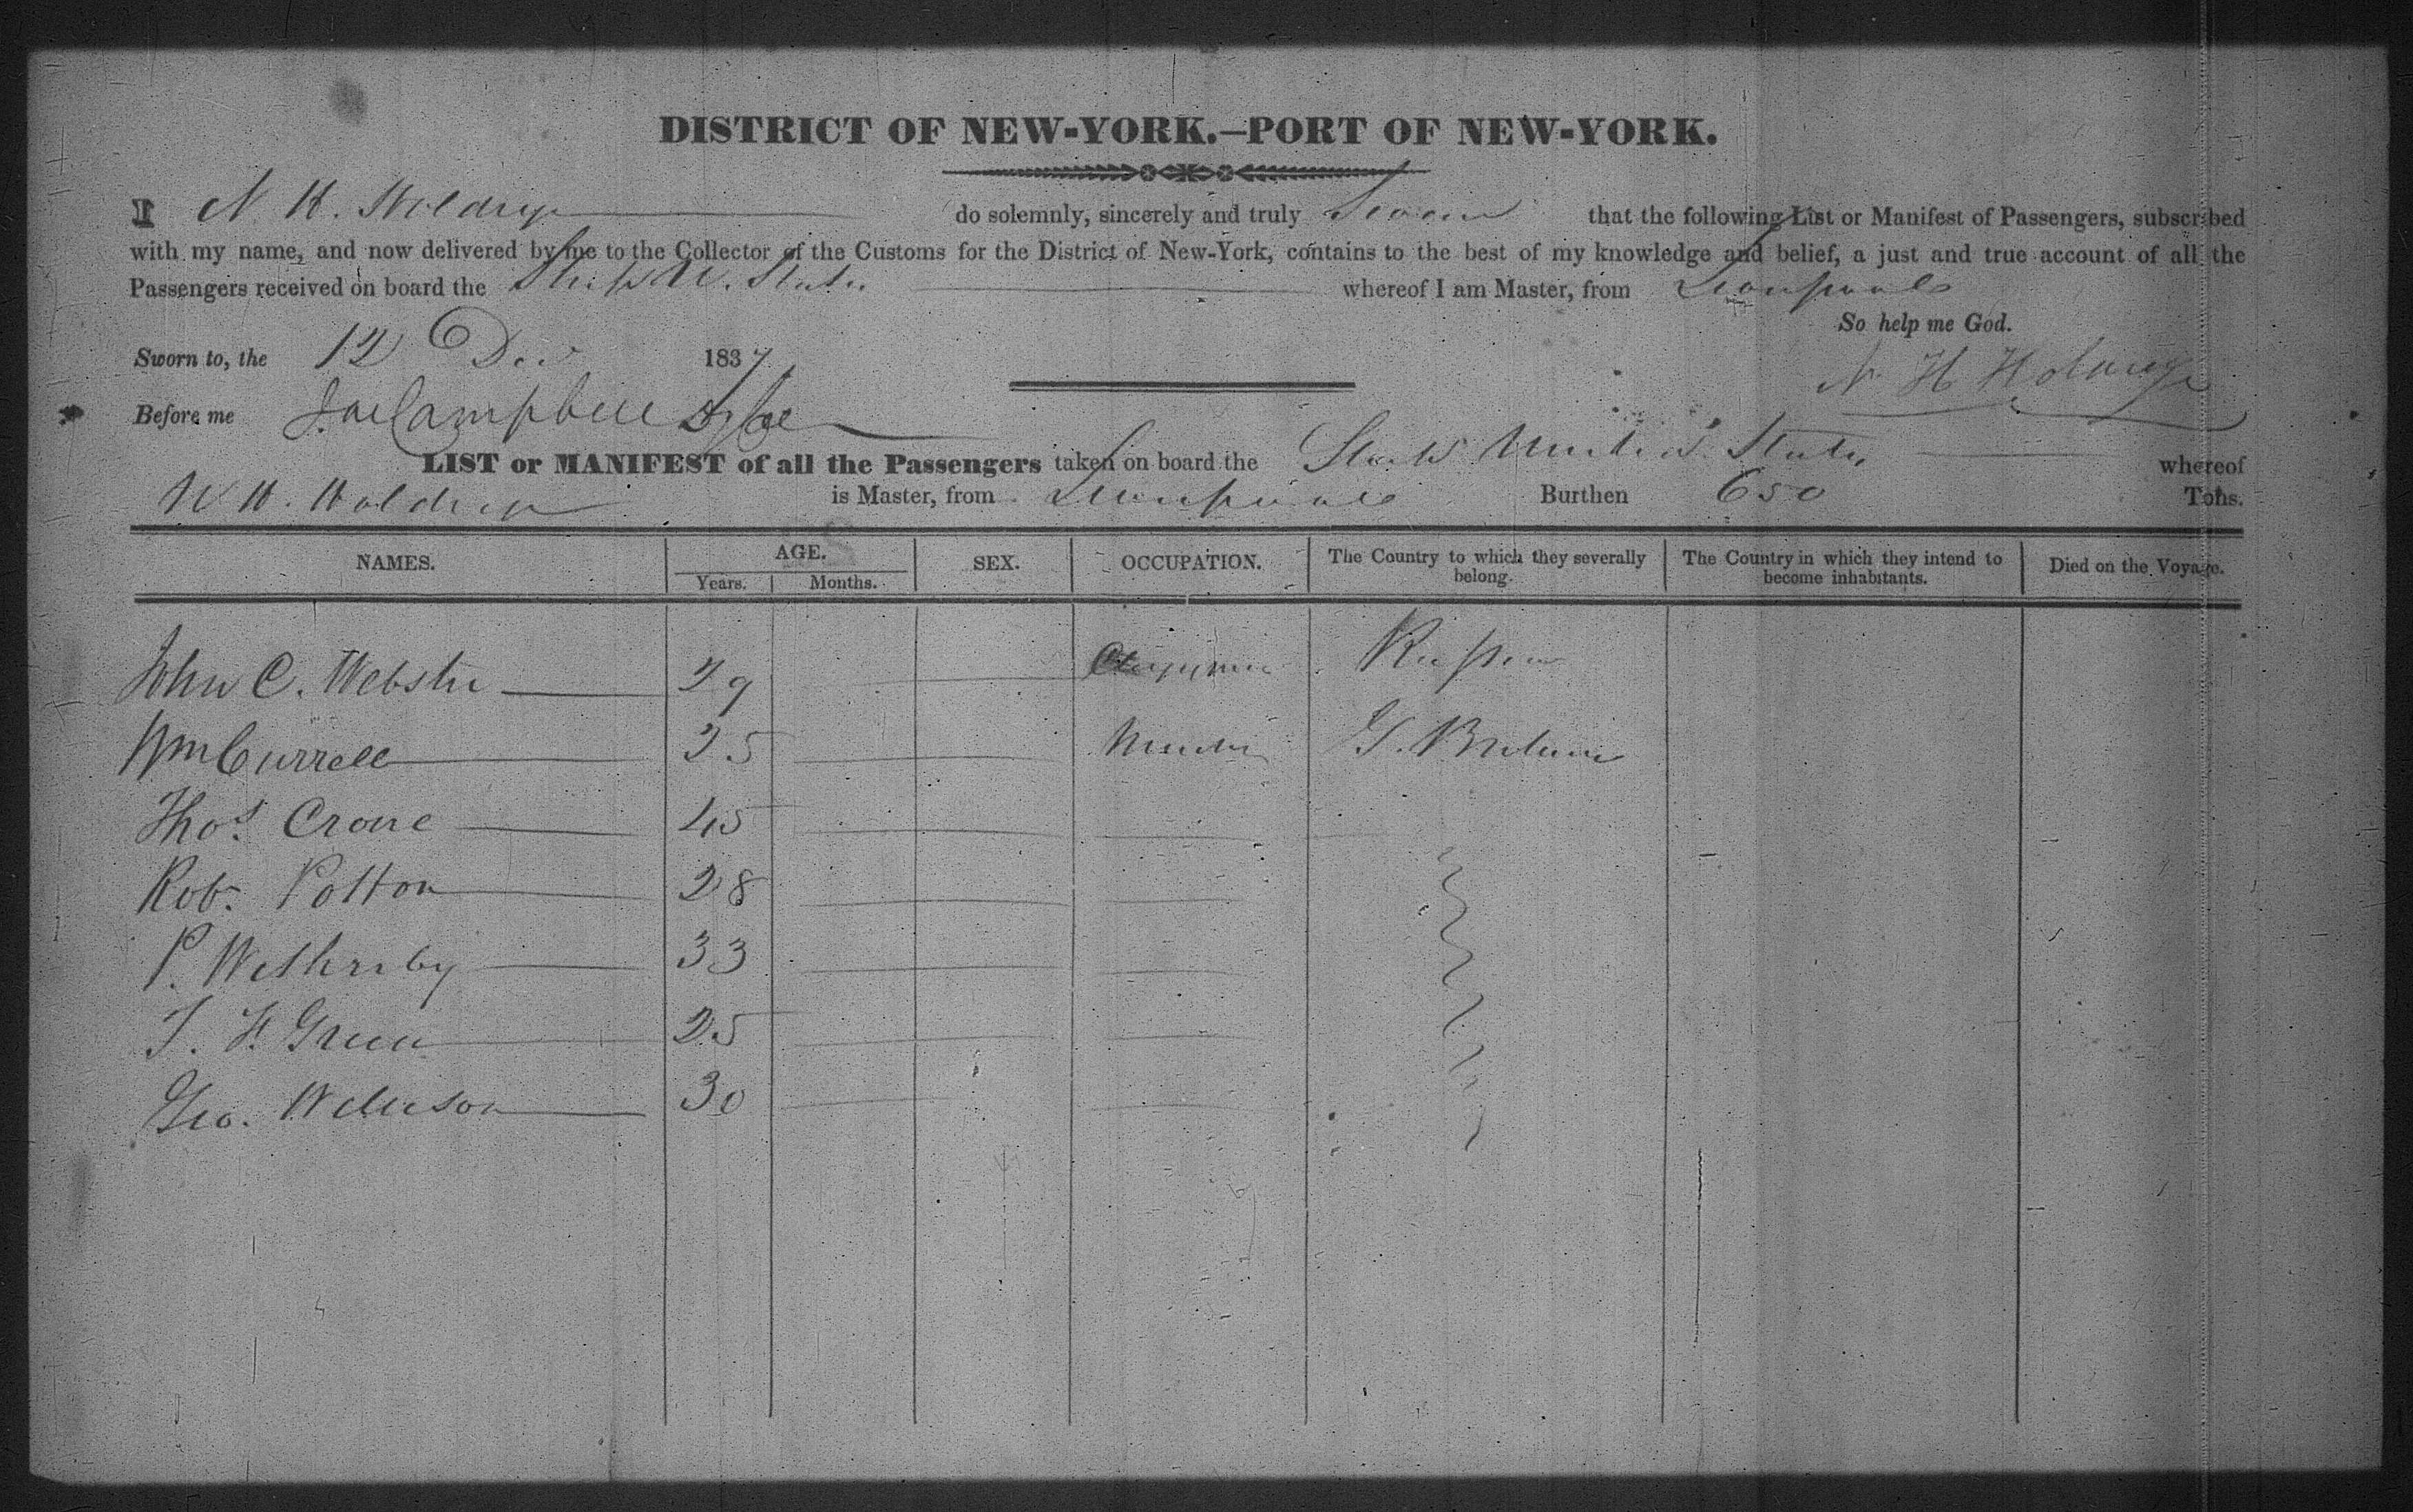 DISTRICT OF NEW-YORK.—PORT OF NEW-YORK.
I N. H. Holdrege do solemnly, sincerely and truly Swear that the following List or Manifest of Passengers, subscribed
with my name, and now delivered by me to the Collector of the Customs for the District of New-York, contains to the best of my knowledge and belief, a just and true account of all the
Passengers received on board the Ship U. States whereof I am Master, from Liverpool
So help me God.
Sworn to, the 12 Dec 1837
N H Holdrege
Before me Campbell
LIST or MANIFEST of all the Passengers taken on board the United States whereof
N H. Holdrege is Master, from Liverpool Burthen 650 Tons.
NAMES. AGE. SEX. OCCUPATION. The Country to which they severally belong. The Country in which they intend to become inhabitants. Died on the Voyage.
Years. Months.
John C. Webster 29 Clergyman Russia
Wm Currell 25 G. Britain
Thos. Crone 45
Rob. Potton 28
P. Wetherby 33
T. F. Green 25
Geo. Wilkinson 30